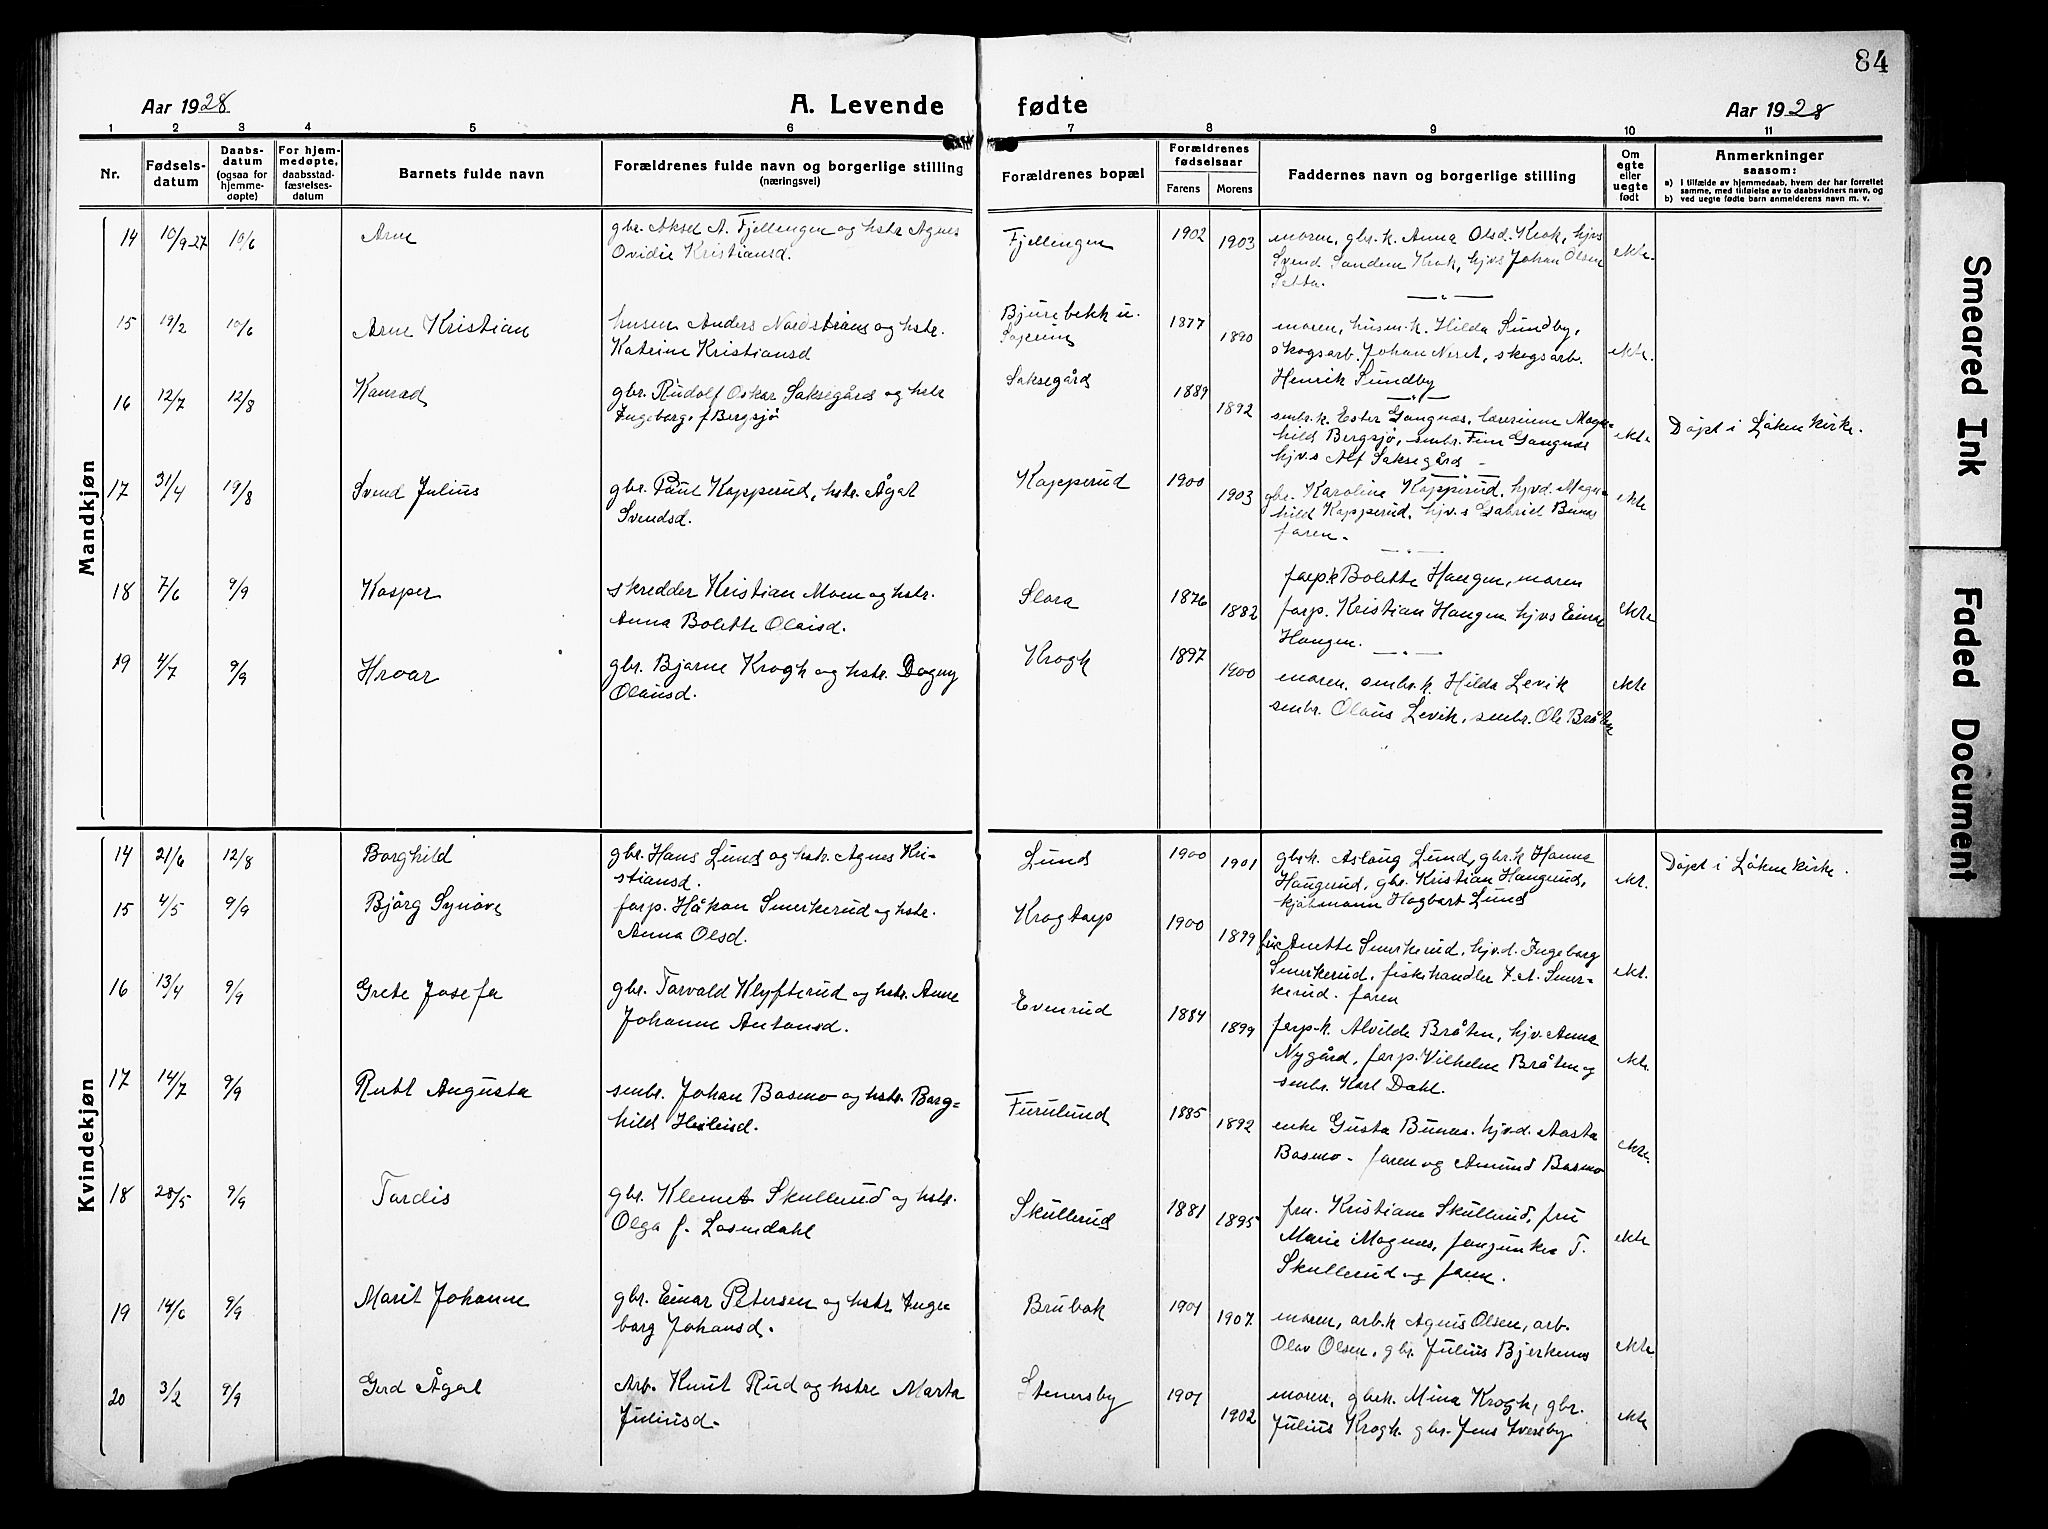 84
Aar 1928
A. Levende fødte
Aar 1928
1 2 3 4 5 6 7 8 9 10 11
Nr.
Fødsels-
datum
Daabs-
datum
(ogsaa for
hjemme-
døpte)
For hjem-
medøpte,
daabsstad-
fæstelses-
datum
Barnets fulde navn
Forældrenes fulde navn og borgerlige stilling
(næringsvei)
Forældrenes bopæl
Forældrenes
fødselsaar
Farens Morens
Faddernes navn og borgerlige stilling
Om
egte
eller
uegte
født
Anmerkninger
saasom:
a) i tilfælde av hjemmedaab, hvem der har forrettet
samme, med tilføielse av to daabsvidners navn, og
b) ved uegte fødte barn anmelderens navn m. v.
Mandkjøn
14 10/9 27 10/6 Arne
gbr. Aksel A. Fjellengen og hstr Agnes
Ovidie Kristiansd.
Fjellengen 1902 1903
moren, gbr. k. Anna Olsd. Krok, hjvs
Svend Sandem Krok, hjvs Johan Olsen
Setta.
ekte.
15 19/2 10/6 Arne Kristian
husm Anders Nordstrøms og hstr.
Katrine Kristiansd
Bjurebekk u.
1877 1890
moren, husm. k. Hilda Sundby,
skogsarb. Johan Neset, skogsarb.
Henrik Sundby
ekte.
16 12/7 12/8 Konrad
gbr. Rudolf Oskar Saksegård og hstr
Ingeborg f. Bergsjø
Saksegård 1889 1892
smbr. k. Ester Gangnæs, lærerinne Magn-
hild Bergsjø, smbr. Finn Gangnæs
hjv.s Alf Saksegård -
ekte
Døpt i Løken kirke.
17 31/4 19/8 Svend Julius
gbr. Paul Kopperud, hstr. Ågat
Svendsd.
Kopperud 1900 1903
gbr. Karoline Kopperud, hjvd. Magn-
hild Kopperud, hjv.s Gabriel Bunes
faren -
ekte
18 7/6 9/9 Kasper
skredder Kristian Moen og hstr.
Anna Bolette Olaisd.
Slora 1876 1882
forp.k Bolette Haugen, moren
forp. Kristian Haugen hjvs Einar
Haugen.
ekte
19 4/7 9/9 Hroar
gbr. Bjarne Krogh og hstr. Dagny
Olausd.
Krogh 1897 1900
moren, smbr. k. Hilda Levik
smbr. Olaus Levik, smbr. Ole Bråten
ekte
Kvindekjøn
14 21/6 12/8 Borghild
gbr. Hans Lund og hstr. Agnes Kri-
stiansd.
Lund 1900 1901
gbrk. Aslaug Lund, gbr. k Hanna
Haugerud, gbr. Kristian Haugerud,
kjøbmann Hagbart Lund
ekt.
Døpt i Løken kirke.
15 4/5 9/9 Bjørg Synøve
forp. Håkon Smerkerud og hstr.
Anna Olsd.
Krogtorp 1900 1899
fru Anette Smerkerud, hjv.d. Ingeborg
Smerkerud, fiskehandler F. A. Smer-
kerud. faren
ekt.
16 13/4 9/9 Grete Josefa
gbr. Torvald Klyfterud og hstr. Anne
Johanne Antonsd.
Evenrud 1884 1899
forp.k. Alvilde Bråten, hjv. Anna
Nygård, forp. Vilhelm Bråten og
smbr. Karl Dahl.
ekte.
17 14/7 9/9 Rutt Augusta
smbr. Johan Basmo og hstr. Borg-
hild
Furulund 1885 1892
enke Gusta Bunæs. hjv.d. Aasta
Basmo - faren og Amund Basmo
ekte.
18 28/5 9/9 Tordis
gbr. Klemet Skullerud og hstr.
Olga f. Losmdahl
Skullerud 1881 1895
frn. Kristiane Skullerud, fru
Marie Magnæs, fanejunker T.
Skullerud og faren.
ekte
19 14/6 9/9 Marit Johanne
gbr. Einar Petersen og hstr Inge-
borg Johansd.
Brubak 1901 1907
moren, arb.k Agnis Olsen, arb.
Olav Olsen, gbr. Julius Bjerkenes
ekte
20 3/2 9/9 Gerd Ågat
Arb. Knut Rud og hstre Marta
Juliusd.
Stenersby 1901 1902
moren, gbrk. Mina Krogh, gbr.
Julius Krogh. gbr. Jens Iversby
ekte
Smeared Ink
Faded Document